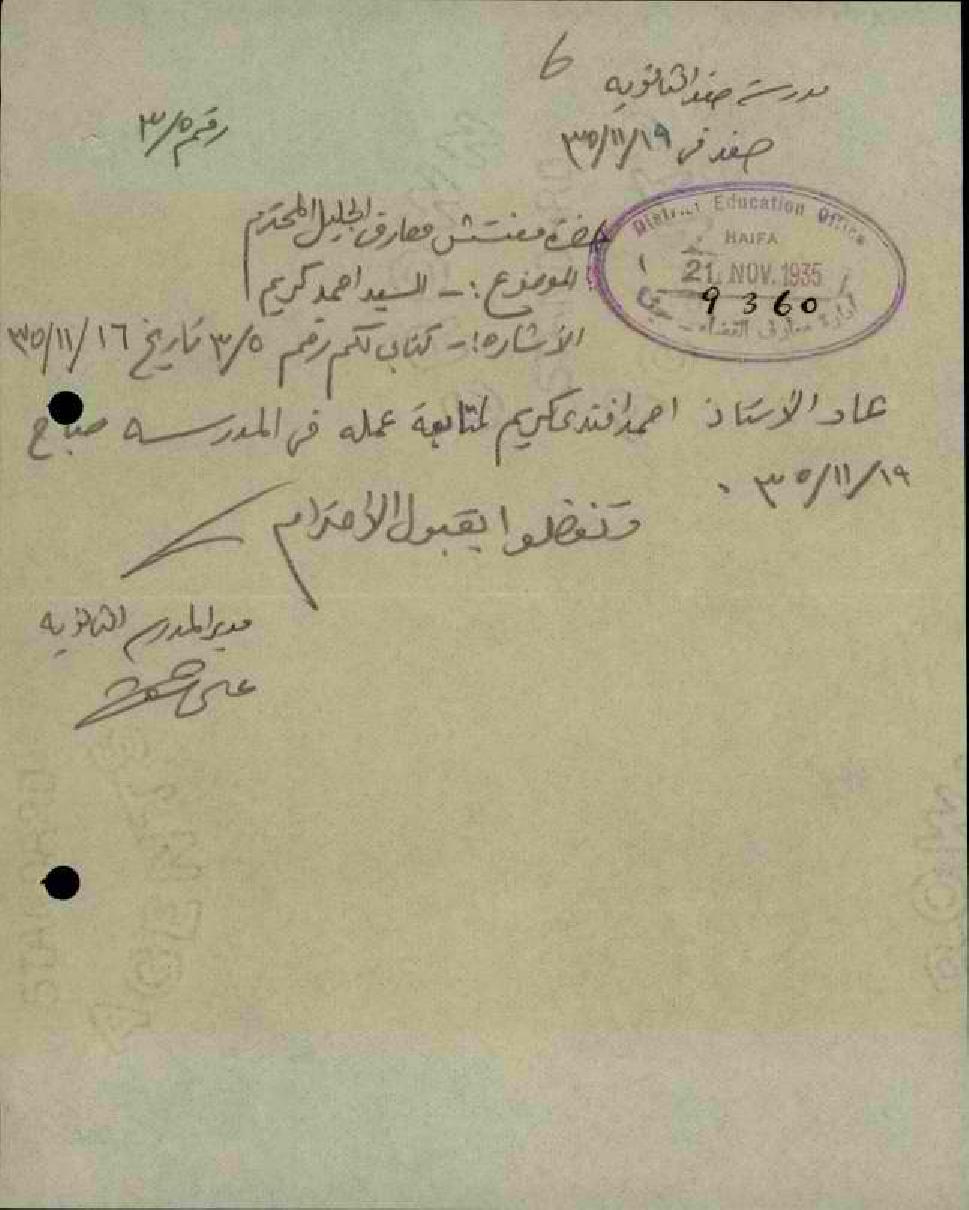 ٦
مدرسة صفد الثانويه
رقم ٣/٥
صفد في ٣٥/١١/١٩
حضرة مفتش معارف الجليل المحترم
الموضوع :- السيد احمد كريم
الأشاره :- كتابكم رقم ٣/٥ تاريخ ٣٥/١١/١٦
District Education Office
HAIFA
21. NOV. 1935
9360
عاد الأستاذ احمد افندي كريم لمتابعة عمله في المدرسه صباح
٣٥/١١/١٩ .
وتفضلوا بقبول الأحترام
مدير المدرسه الثانويه